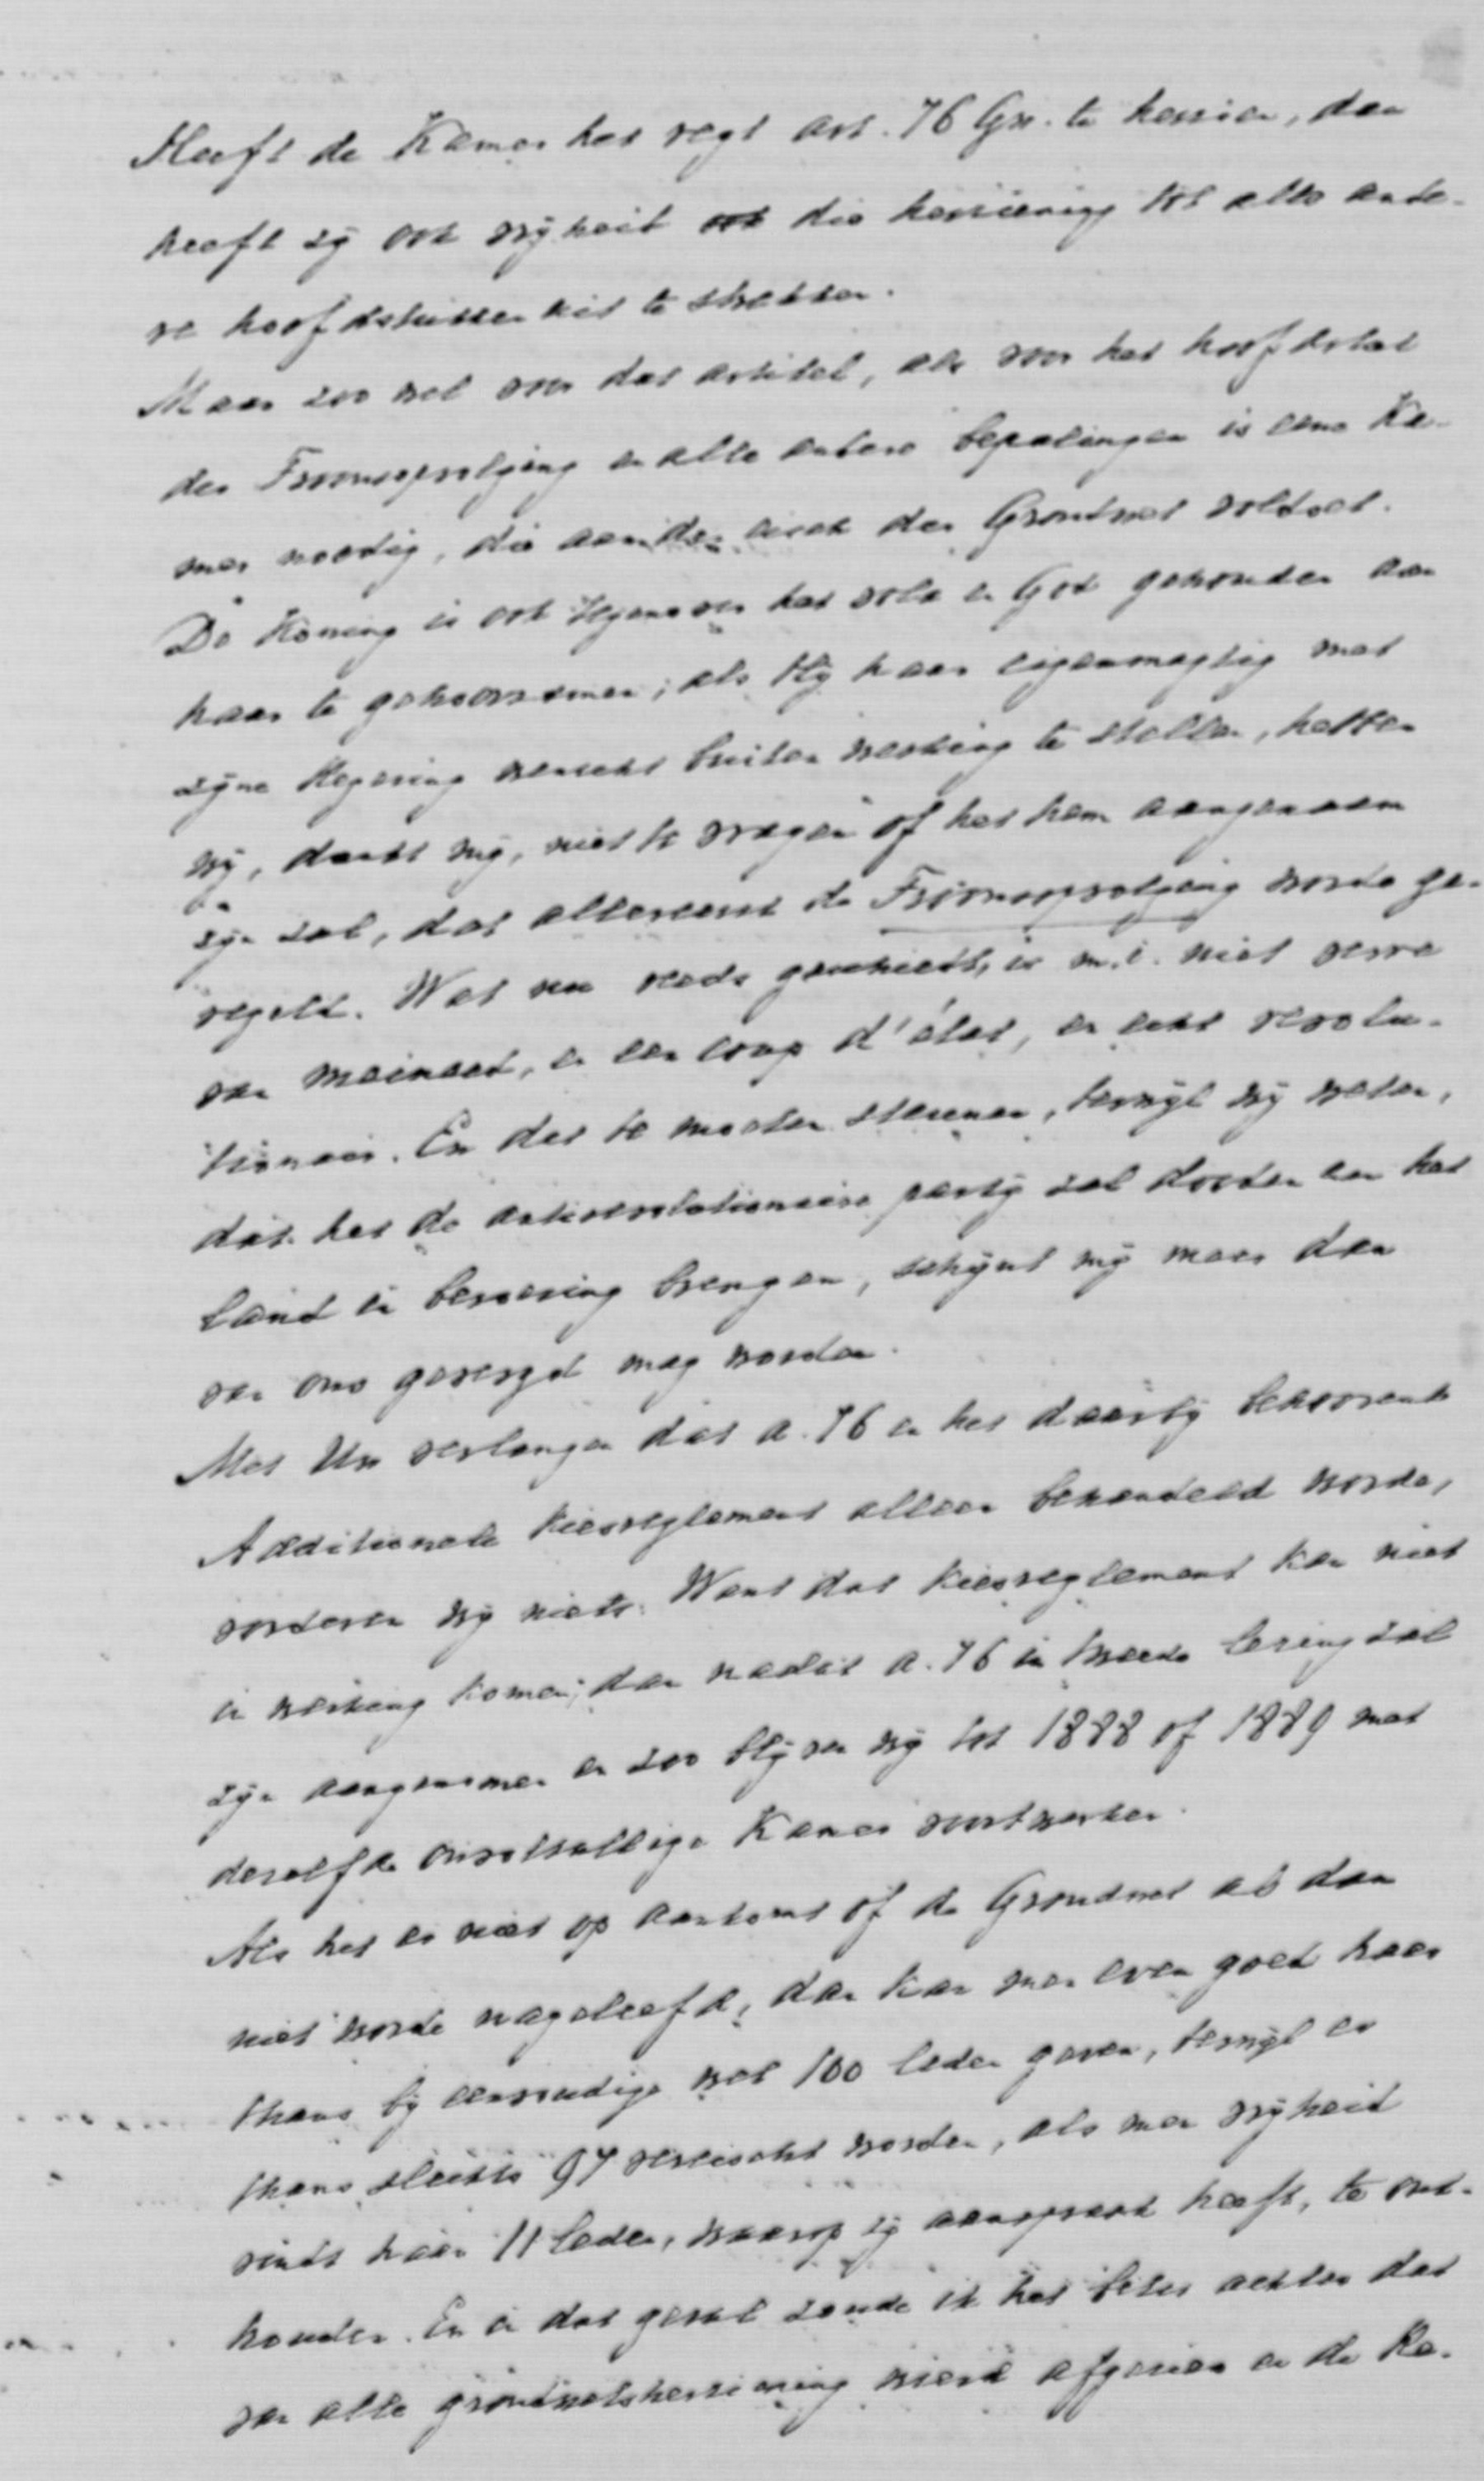 Heeft de Kamer het regt art. 76 Gw. te herzien, dan
heeft zij ook vrijheid die herziening tot alle ande-
re hoofdstukken uit te strekken.
Maar zoo wel voor dat artikel, als voor het hoofdstuk
der Troonsopvolging en alle andere bepalingen is eene Ka-
mer noodig, die aan den eisch der Grondwet voldoet.
De Koning is ook tegenover het volk en God gehouden aan
haar te gehoorzamen; als Hij haar eigenmagtig met
zijne Regering wenscht buiten werking te stellen, hebben
wij, dunkt mij, niet te vragen of het hem aangenaam
zijn zal, dat allereerst de Troonopvolging worde ge-
regeld. Wat nu reeds geschiedt, is m.i. niet verre
van meineed, en een coup d'état, en echt revolu-
tionair. En dat te moeten steunen, terwijl wij weten,
dat het de antirevolutionaire partij zal dooden en het
land in beroering brengen, schijnt mij meer dan
van ons gevergd mag worden.
Met Uw verlangen dat a. 76 en het daarbij behoorende
Additioneele kiesreglement alleen behandeld worde,
vorderen wij niets. Want dat kiesreglement kan niet
in werking komen, dan nadat a. 76 in tweede lezing zal
zijn aangenomen en zoo blijven wij tot 1888 of 1889 met
dezelfde onvoltallige Kamer voortwerken.
Als het er niet op aankomt of de Grondwet al dan
niet worde nageleefd, dan kan men even goed haar
thans bij eenvoudige wet 100 leden geven, terwijl er
thans slechts 97 vereischt worden, als men vrijheid
vindt haar 11 leden, waarop zij aanspraak heeft, te ont-
houden. En in dat geval zoude ik het beter achten dat
van alle grondwetsherziening wierd afgezien en de Ka-